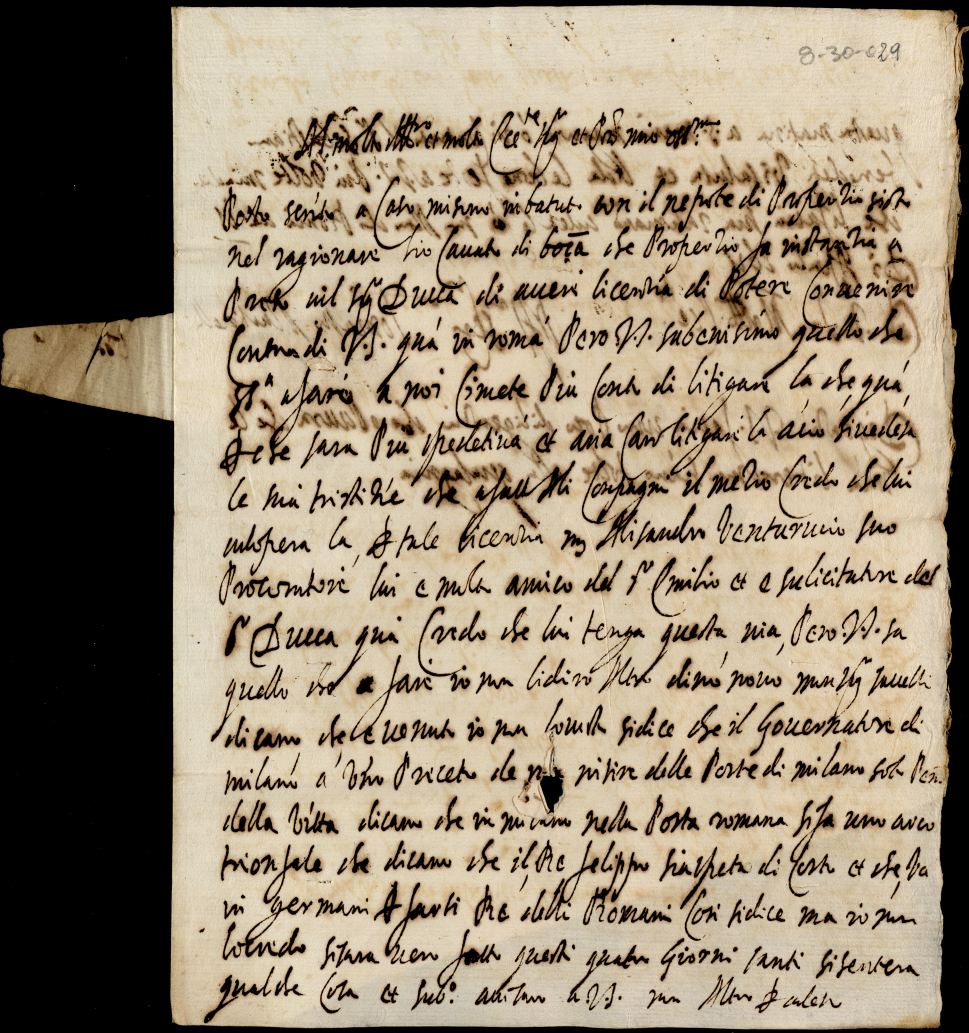 8-30-029
molto et molto et mio
Posto scrito a Caso misono inbatuto con il nepote di Propertio sisto
nel ragionare lio Cavato di boca che Propertio fa instantia a
Preto nil Sr Ducca di avere licentia di Potere Convenire
Contra di V.S. quá in roma Pero V.S. quello che
a fare a noi Cimete Piu Conto di litigare la che quá
che sara Piu speditiva et avia Caro litigare la acio sivedesa
le sui tristitie che a fatto alli Conpagni il medio Credo che lui
adopera la tale licentia Alisandro Venturucio suo
Procuratore lui e molto amico del Sr Emilio et e sulicitatore del
Sr Ducca qua Credo che lui tenga questa via, Pero V.S. fa
quello che a fare io non lidiro Altro dimo novo mon Sr
dicano che e venuto io non lovisto sidice che il Governatore di
milano a Preceto de non usire delle Porte di milano soto Pena
della Vitta dicano che in milano nella Porta romana sifa uno arco
trionfale che dicano che il Re felippo siaspeta di Corto et che Va
in germani farsi Re delli Romani Cosi sidice ma io non
locredo sisara vero fatto questi quatro Giorni santi sisentera
qualche Cosa et subo avisaro a V.S. non Altro